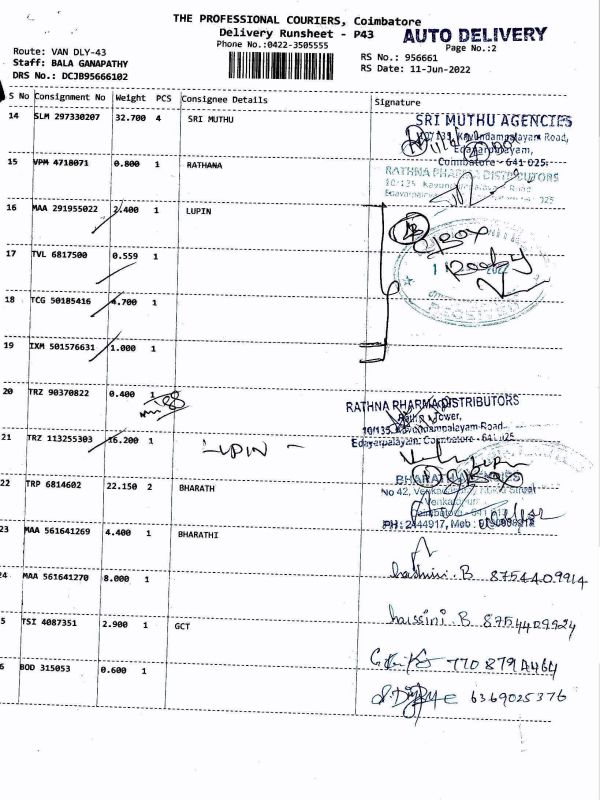 THE PROFESSIONAL COURIERS, Coimbatore
Delivery Runsheet - P43
AUTO DELIVERY
Phone No.:0422-3505555
Page No.:2
Route: VAN DLY-43
Staff: BALA GANAPATHY
DRS No.: DCJB95666102
RS No.: 956661
RS Date: 11-Jun-2022
S No Consignment No Weight PCS Consignee Details Signature
14 SLM 297330207 32.700 4 SRI MUTHU
SRI MUTHU AGENCIES
10/135, Kavundampalayam Road,
Edayarpalayam,
Coimbatore - 641 025.
15 VPM 4718071 0.800 1 RATHANA
RATHNA PHARMA DISTRIBUTORS
10/135 Kavundampalayam Road
16 MAA 291955022 2.400 1 LUPIN
17 TVL 6817500 0.559 1
18 TCG 50185416 4.700 1
19 IXM 501576631 1.000 1
20 TRZ 90370822 0.400 1
RATHNA PHARMA DISTRIBUTORS
Rathna Tower,
10/135, Kavundampalayam Road
Edayarpalayam, Coimbatore - 641 025
21 TRZ 113255303 16.200 1 LUPIN
22 TRP 6814602 22.150 2 BHARATH
No 42,
23 MAA 561641269 4.400 1 BHARATHI
hashini. B 8754409914
24 MAA 561641270 8.000 1
hassini. B 8754409924
5 TSI 4087351 2.900 1 GCT
770 8791464
6 BOD 315053 0.600 1
6369025376